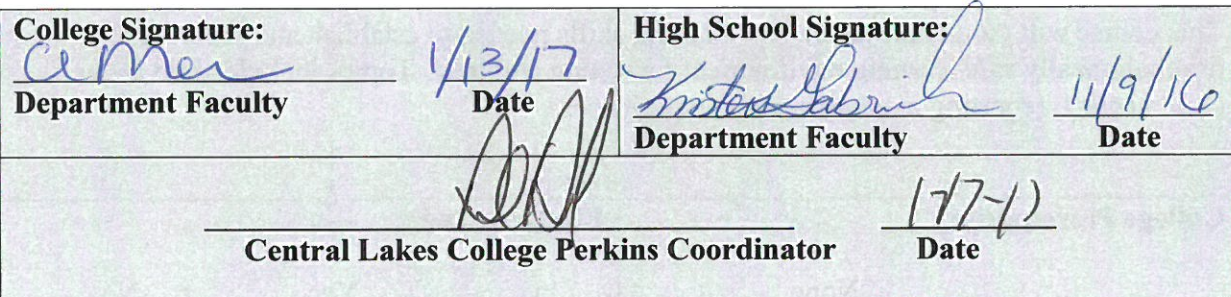 College Signature:
1/13/17
Department Faculty Date
High School Signature:
11/9/16
Department Faculty Date
Central Lakes College Perkins Coordinator Date